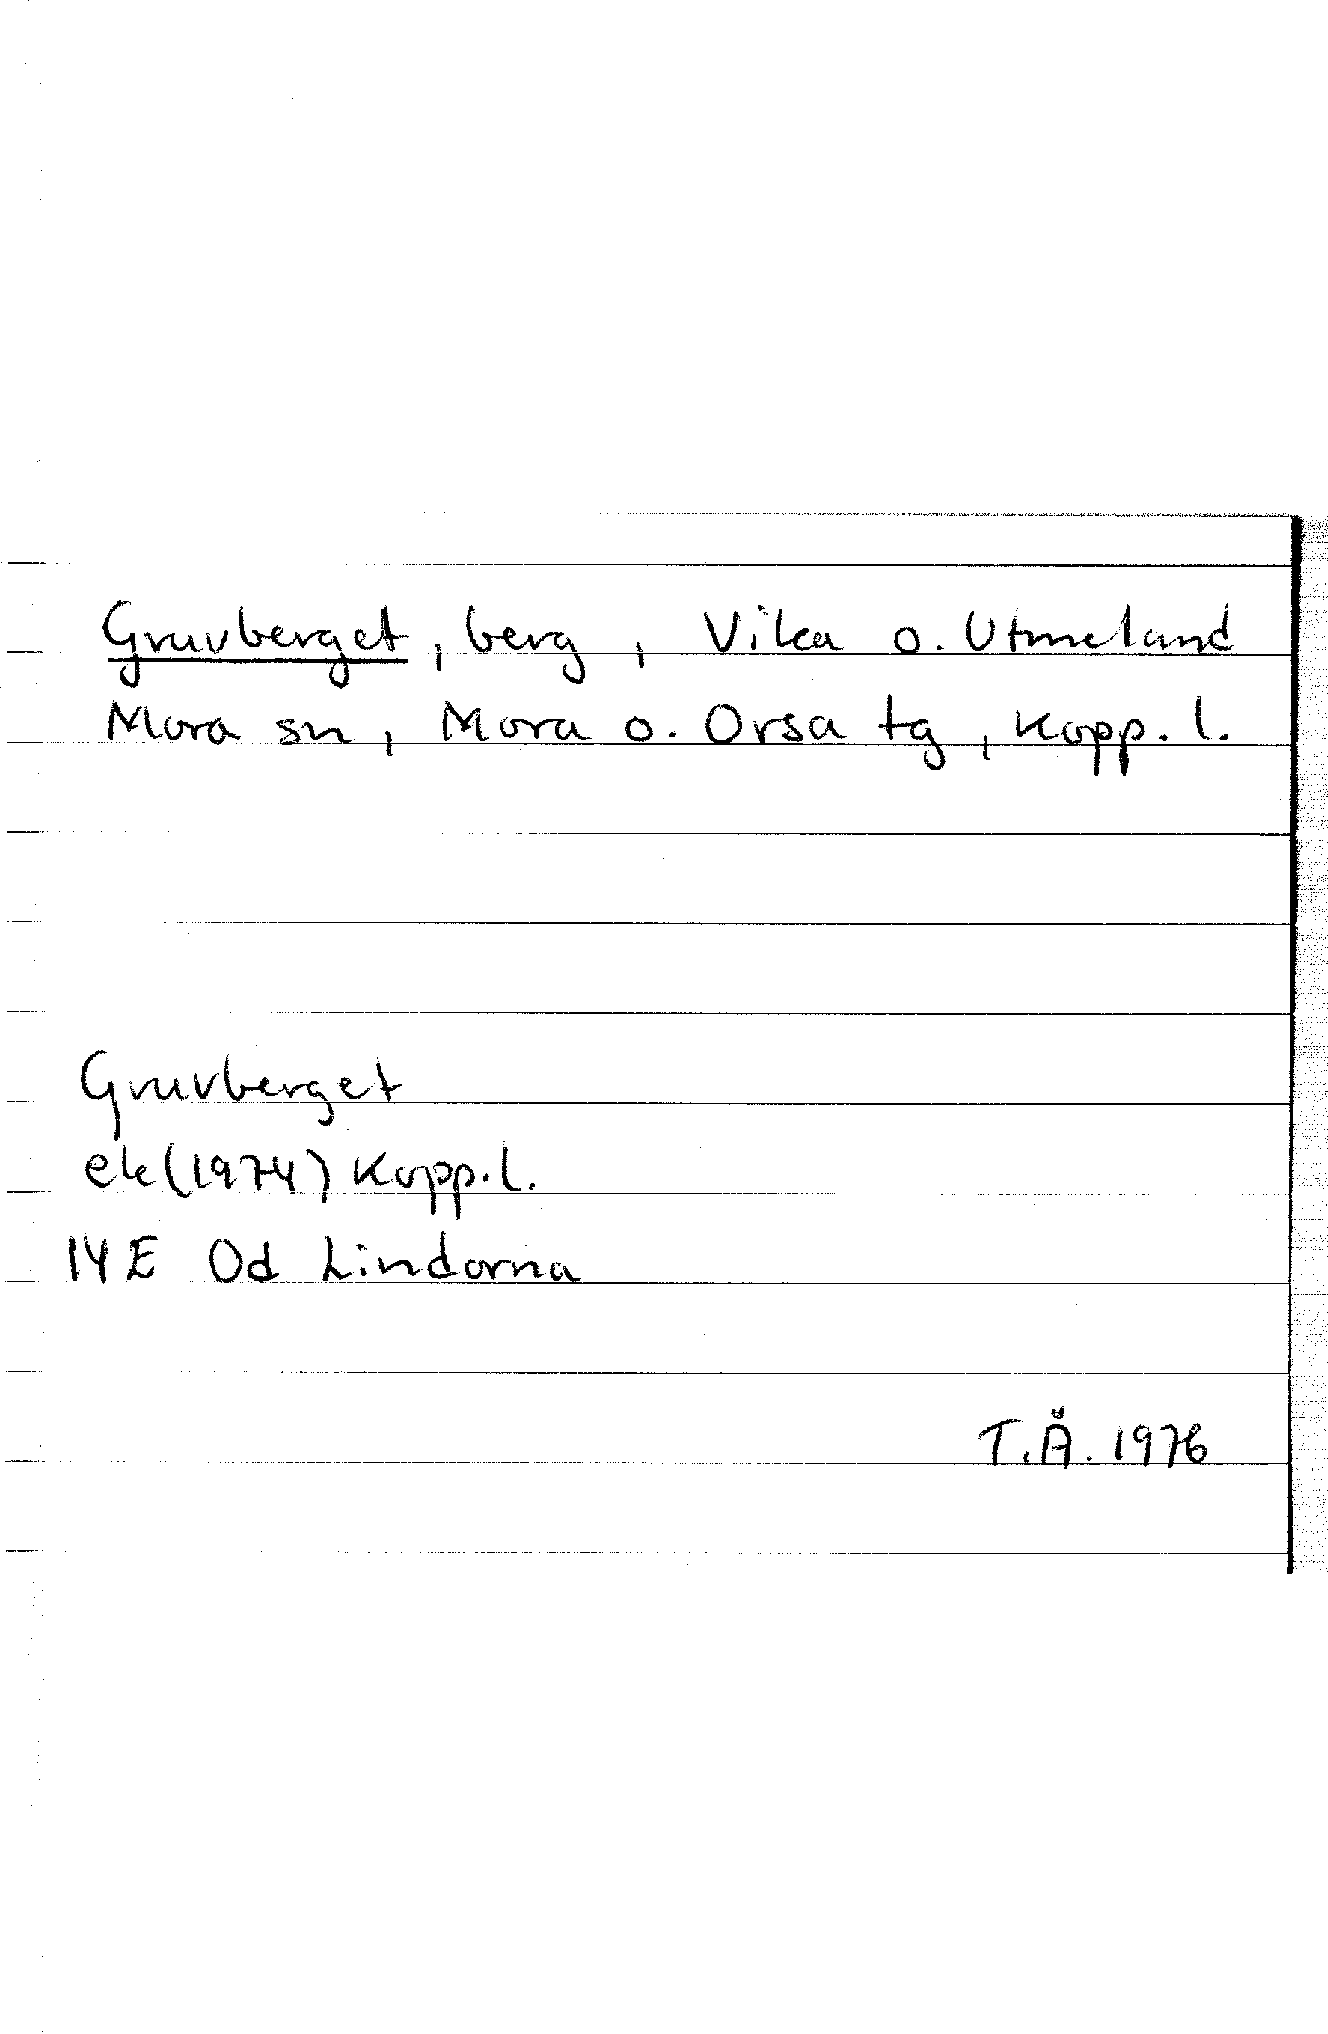 Gruvberget, berg, Vika o. Utmeland
Mora sn, Mora o. Orsa tg, Kopp. l.
Gruvberget
ek(1974) Kopp. l.
14E 0d Lindorna
T.Å. 1976